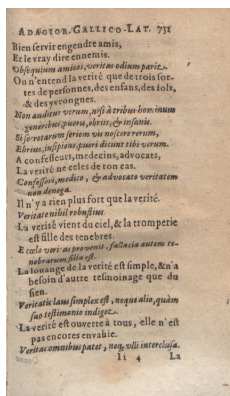 ADAGIOR. GALLICO-LAT. 731
Bien servir engendre amis,
Et le vray dire ennemis.
Obsequium amicos, veritas odium parit.
On n'entend la verité que de trois sor-
tes de personnes, des enfans, des fols,
& des yvrongnes.
Non auditur verum, nisi à tribus hominum
generibus, pueris, ebriis, & insanis.
Si secretarum seriem vis noscere rerum,
Ebrius, insipiens, pueri dicunt tibi verum.
A confesseurs, medecins, advocats,
La verité ne celes de ton cas.
Confessori, medico, & advocato veritatem
non denega.
Il n'y a rien plus fort que la verité.
Veritate nihil robustius.
La verité vient du ciel, & la tromperie
est fille des tenebres.
E cœlo veritas provenit, fallacia autem te-
nebrarum filia est.
La louange de la verité est simple, & n'a
besoin d'autre tesmoinage que du
sien.
Veritatis laus simplex est, neque alio, quàm
suo testimonio indiget.
La verité est ouverte à tous, elle n'est
pas encores envahie.
Veritas omnibus patet, neq, ulli interclusa.
Ii 4 La